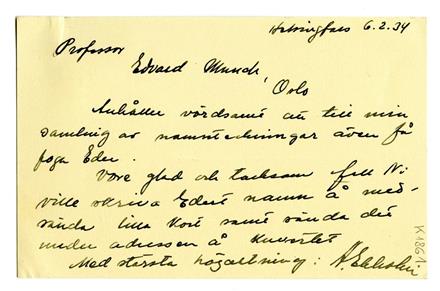 Helsingfors 6.2.34
Professor
Edvard Munch,
Oslo
Anhåller vördsamt att till min
samling av namnteckningar även få
foga Eder.
Vore glad och tacksam fall Ni
ville skriva Edert namn å med-
sända lilla kort samt sända det
under adressen å kuvertet
Med största högaktning:
K 1861.